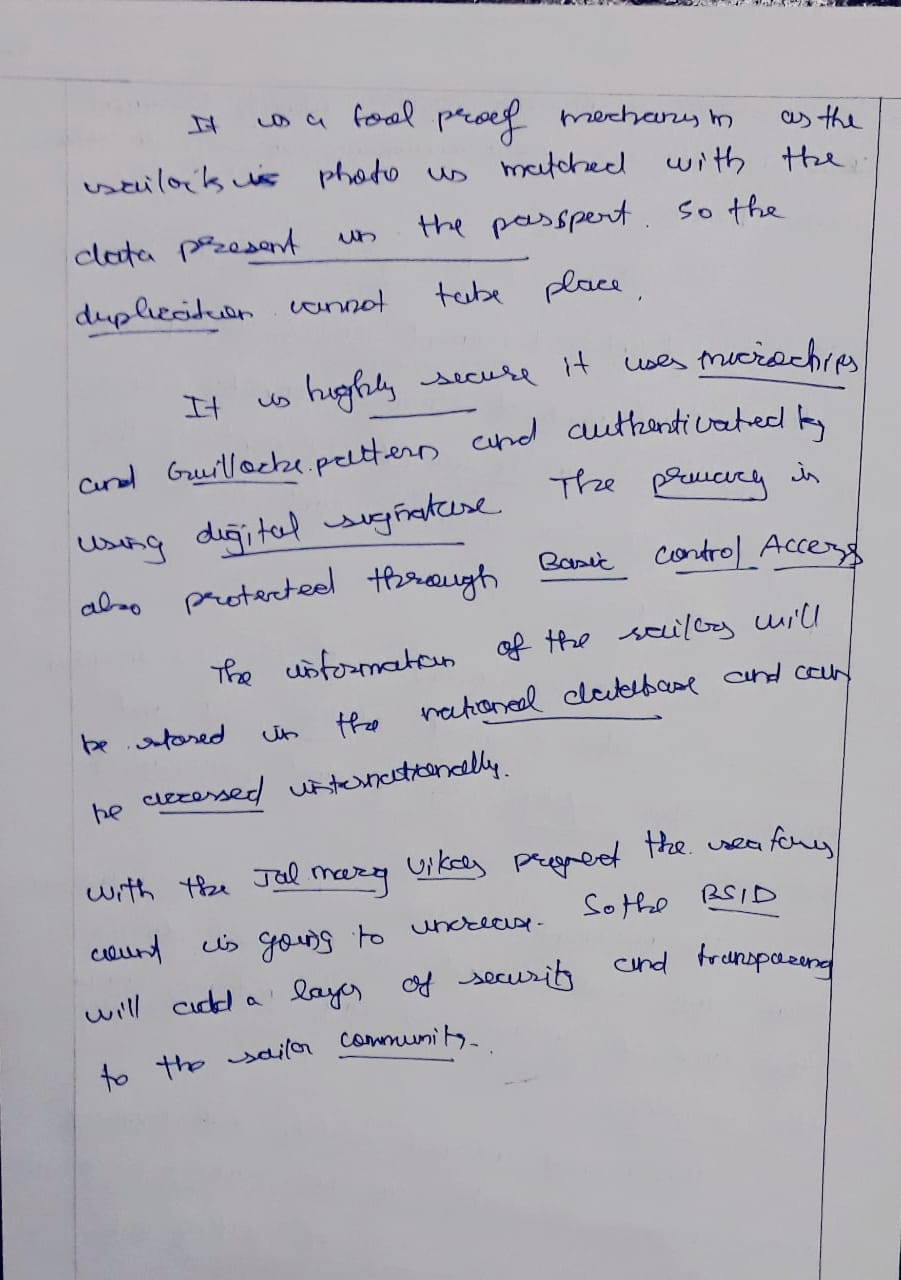 It is a fool proof mechanism as the
sailor's is photo is matched with the
data present in the passport. So the
duplication cannot take place.
It is highly secure it uses microchips
and Guilloche pattern and authenticated by
using digital signature. The privacy is
also protected through Basic Control Access
The information of the sailors will
be stored in the national database and can
be accessed internationally.
With the Jal marg Vikas progreet the seafany
count is going to increase. So the BSID
will add a layer of security and transparency
to the sailor community.